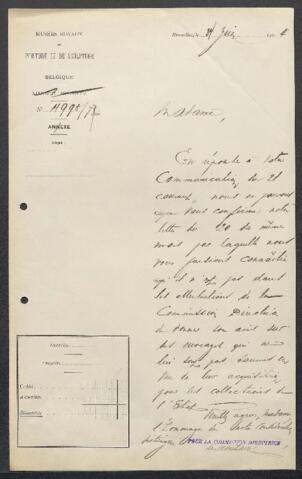 MUSÉES ROYAUX
DE
PEINTURE ET DE SCULPTURE
BELGIQUE
N° 4998/
ANNEXE
Bruxelles, le Juin
Madame,
En réponse à votre
Communication du 21
courant, nous ne pouvons
que vous confirmer notre
lettre du 20 du même
mois par laquelle nous
vous faisions connaître
qu'il n'est pas dans
les attributions de la
Commission Directrice
de donner son avis sur
des ouvrages qui ne
lui sont pas soumis en
vue de leur acquisition
pour les collections de
l'Etat.
Veuillez agréer, Madame,
l'hommage de
POUR LA COMMISSION DIRECTRICE